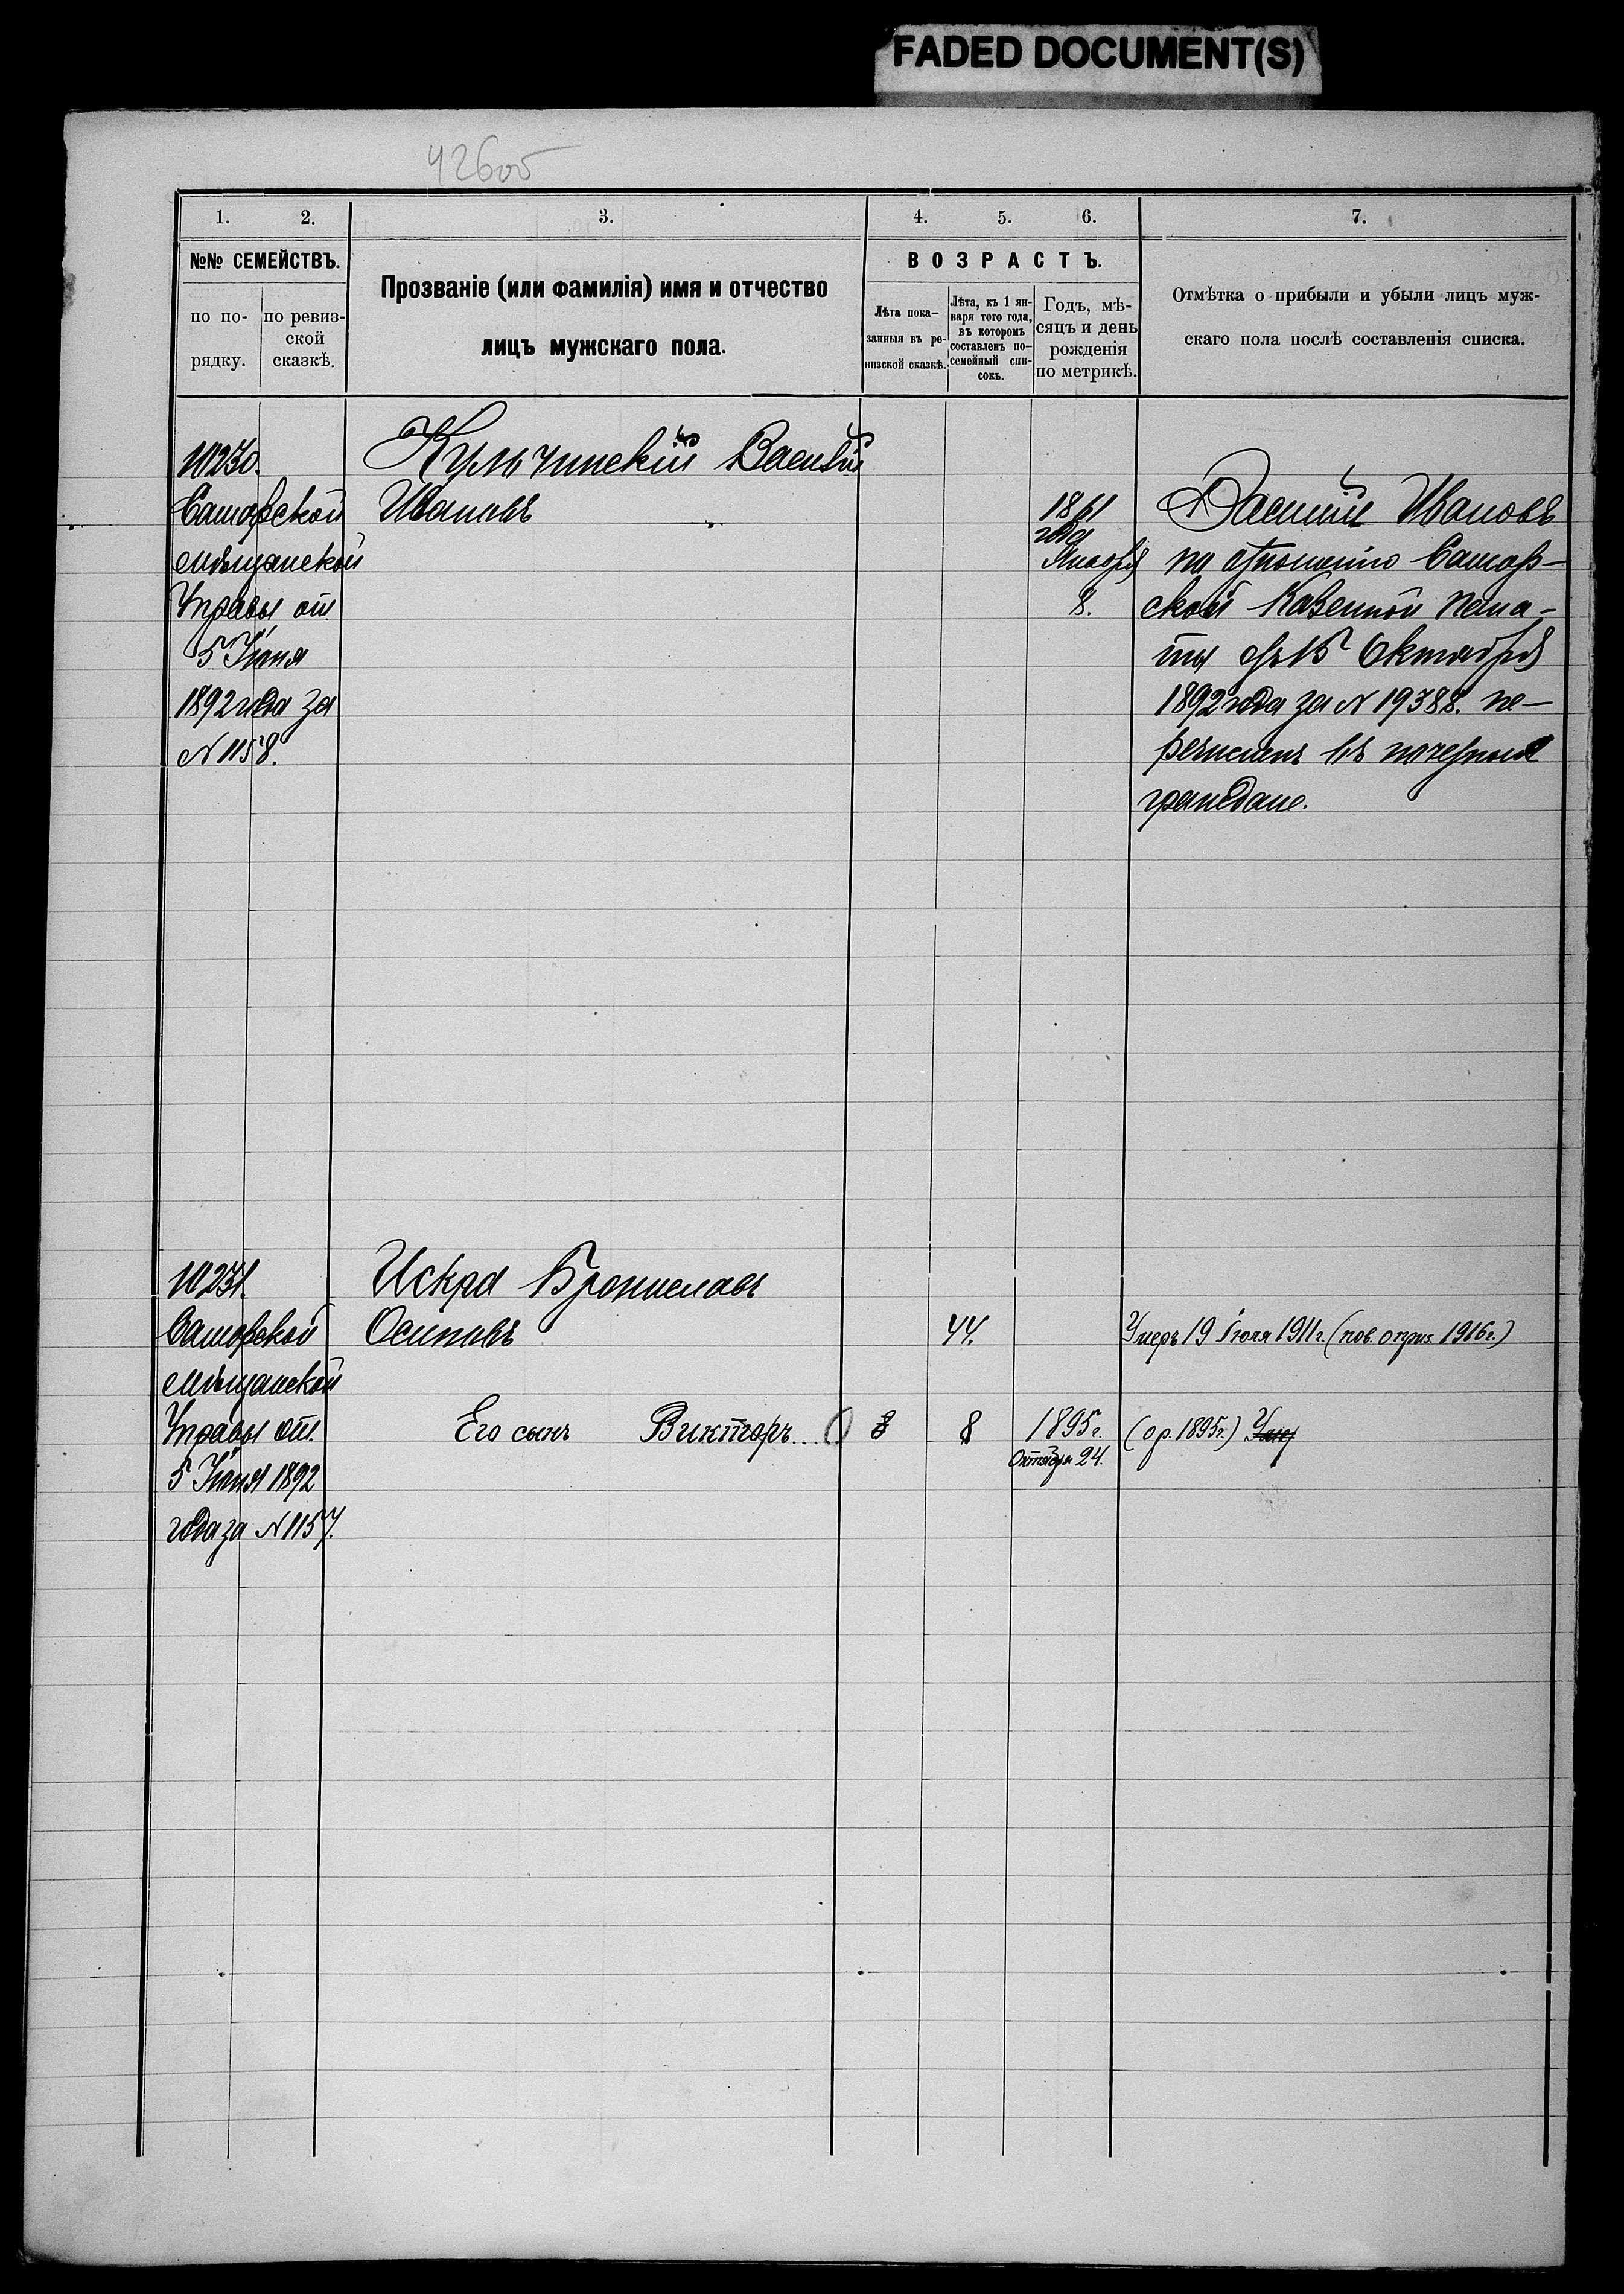 FADED DOCUMENT(S)
42605
1. 2. 3. 4. 5. 6. 7.
№№ СЕМЕЙСТВЪ.
по по-
рядку.
по ревиз-
ской
сказкѣ.
Прозваніе (или фамилія) имя и отчество
лицъ мужскаго пола.
ВОЗРАСТЪ.
Лѣта пока-
занныя въ ре-
визской сказкѣ.
Лѣта, къ 1 ян-
варя того года,
въ которомъ
составленъ по-
семейный спи-
сокъ.
Годъ, мѣ-
сяцъ и день
рожденія
по метрикѣ.
Отмѣтка о прибыли и убыли лицъ муж-
скаго пола послѣ составленія списка.
10230.
Самарской
мѣщанской
Управы от
5 Іюня
1892 года за
N 1158.
Кульчинскій Василій
Ивановъ
1861
года
Января
8.
Василій Ивановъ
по отношенію Самар-
ской Казенной Пала-
ты отъ 15 Октября
1892 года за N 19388. пе-
речисленъ въ почетные
граждане.
10231.
Самарской
мѣщанской
Управы от
5 Іюня 1892
года за N 1157.
Искра Брониславъ
Осиповъ
44.
Умеръ 19 Іюля 1911 г. (пов. о приз. 1916 г.)
Его сынъ Викторъ... 8 8 1895 г.
Октября 24.
(о р. 1895 г.) Умер